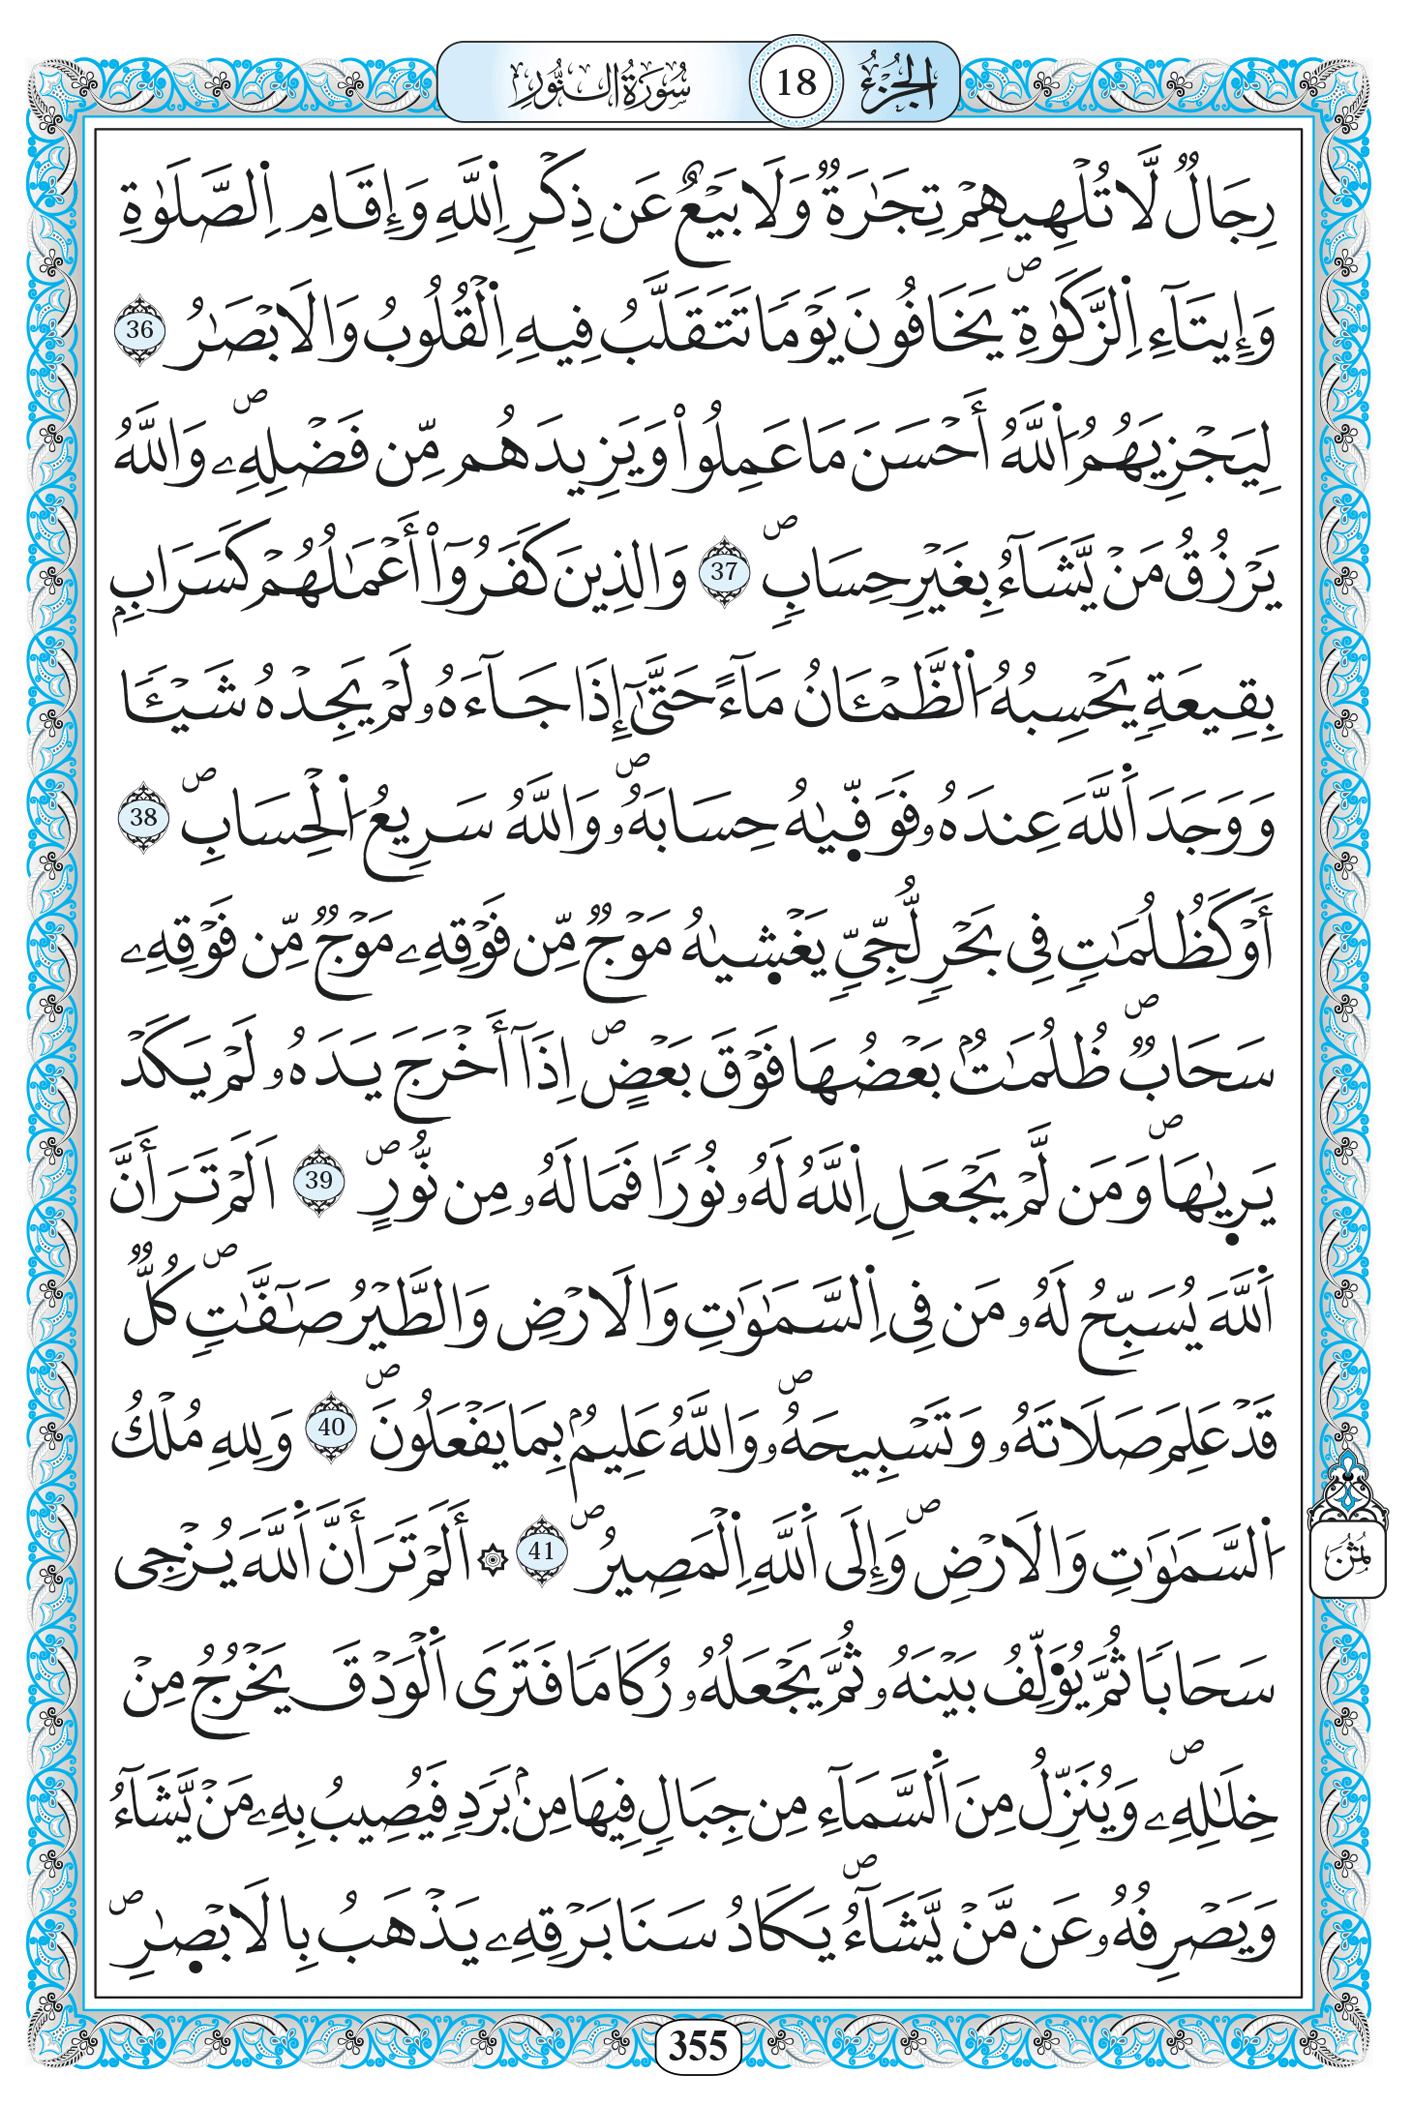 سُورَةُ النُّورِ 18 الجُزْءُ
رِجَالٌ لَّا تُلْهِيهِمْ تِجَٰرَةٌ وَلَا بَيْعٌ عَن ذِكْرِ اِ۬للَّهِ وَإِقَامِ اِ۬لصَّلَوٰةِ
وَإِيتَآءِ اِ۬لزَّكَوٰةِۖ يَخَافُونَ يَوْماٗ تَتَقَلَّبُ فِيهِ اِ۬لْقُلُوبُ وَالَابْصَٰرُ 36
لِيَجْزِيَهُمُ اُ۬للَّهُ أَحْسَنَ مَا عَمِلُواْ وَيَزِيدَهُم مِّن فَضْلِهِۦۖ وَاللَّهُ
يَرْزُقُ مَنْ يَّشَآءُ بِغَيْرِ حِسَابٖۖ 37 وَالذِينَ كَفَرُوٓاْ أَعْمَٰلُهُمْ كَسَرَابِۢ
بِقِيعَةٖ يَحْسِبُهُ اُ۬لظَّمْـَٔانُ مَآءً حَتَّىٰٓ إِذَا جَآءَهُۥ لَمْ يَجِدْهُ شَيْـٔاٗ
وَوَجَدَ اَ۬للَّهَ عِندَهُۥ فَوَفّ۪يٰهُ حِسَابَهُۥۖ وَاللَّهُ سَرِيعُ اُ۬لْحِسَابِۖ 38
أَوْ كَظُلُمَٰتٖ فِى بَحْرٖ لُّجِّيّٖ يَغْش۪يٰهُ مَوْجٌ مِّن فَوْقِهِۦ مَوْجٌ مِّن فَوْقِهِۦ
سَحَابٌۖ ظُلُمَٰتُۢ بَعْضُهَا فَوْقَ بَعْضٍۖ اِذَآ أَخْرَجَ يَدَهُۥ لَمْ يَكَدْ
يَر۪يٰهَاۖ وَمَن لَّمْ يَجْعَلِ اِ۬للَّهُ لَهُۥ نُوراٗ فَمَا لَهُۥ مِن نُّورٍۖ 39 اَلَمْ تَرَ أَنَّ
اَ۬للَّهَ يُسَبِّحُ لَهُۥ مَن فِى اِ۬لسَّمَٰوَٰتِ وَالَارْضِ وَالطَّيْرُ صَٰٓفَّٰتٖۖ كُلٌّ
قَدْ عَلِمَ صَلَاتَهُۥ وَتَسْبِيحَهُۥۖ وَاللَّهُ عَلِيمُۢ بِمَا يَفْعَلُونَۖ 40 وَلِلهِ مُلْكُ
اُ۬لسَّمَٰوَٰتِ وَالَارْضِۖ وَإِلَى اَ۬للَّهِ اِ۬لْمَصِيرُۖ 41 ۞ أَلَمْ تَرَ أَنَّ اَ۬للَّهَ يُزْجِى
سَحَاباٗ ثُمَّ يُوَ۬لِّفُ بَيْنَهُۥ ثُمَّ يَجْعَلُهُۥ رُكَاماٗ فَتَرَى اَ۬لْوَدْقَ يَخْرُجُ مِنْ
خِلَٰلِهِۦۖ وَيُنَزِّلُ مِنَ اَ۬لسَّمَآءِ مِن جِبَالٖ فِيهَا مِنۢ بَرَدٖ فَيُصِيبُ بِهِۦ مَنْ يَّشَآءُ
وَيَصْرِفُهُۥ عَن مَّنْ يَّشَآءُۖ يَكَادُ سَنَا بَرْقِهِۦ يَذْهَبُ بِالَابْصٰ۪رِۖ
ثُمُن
355